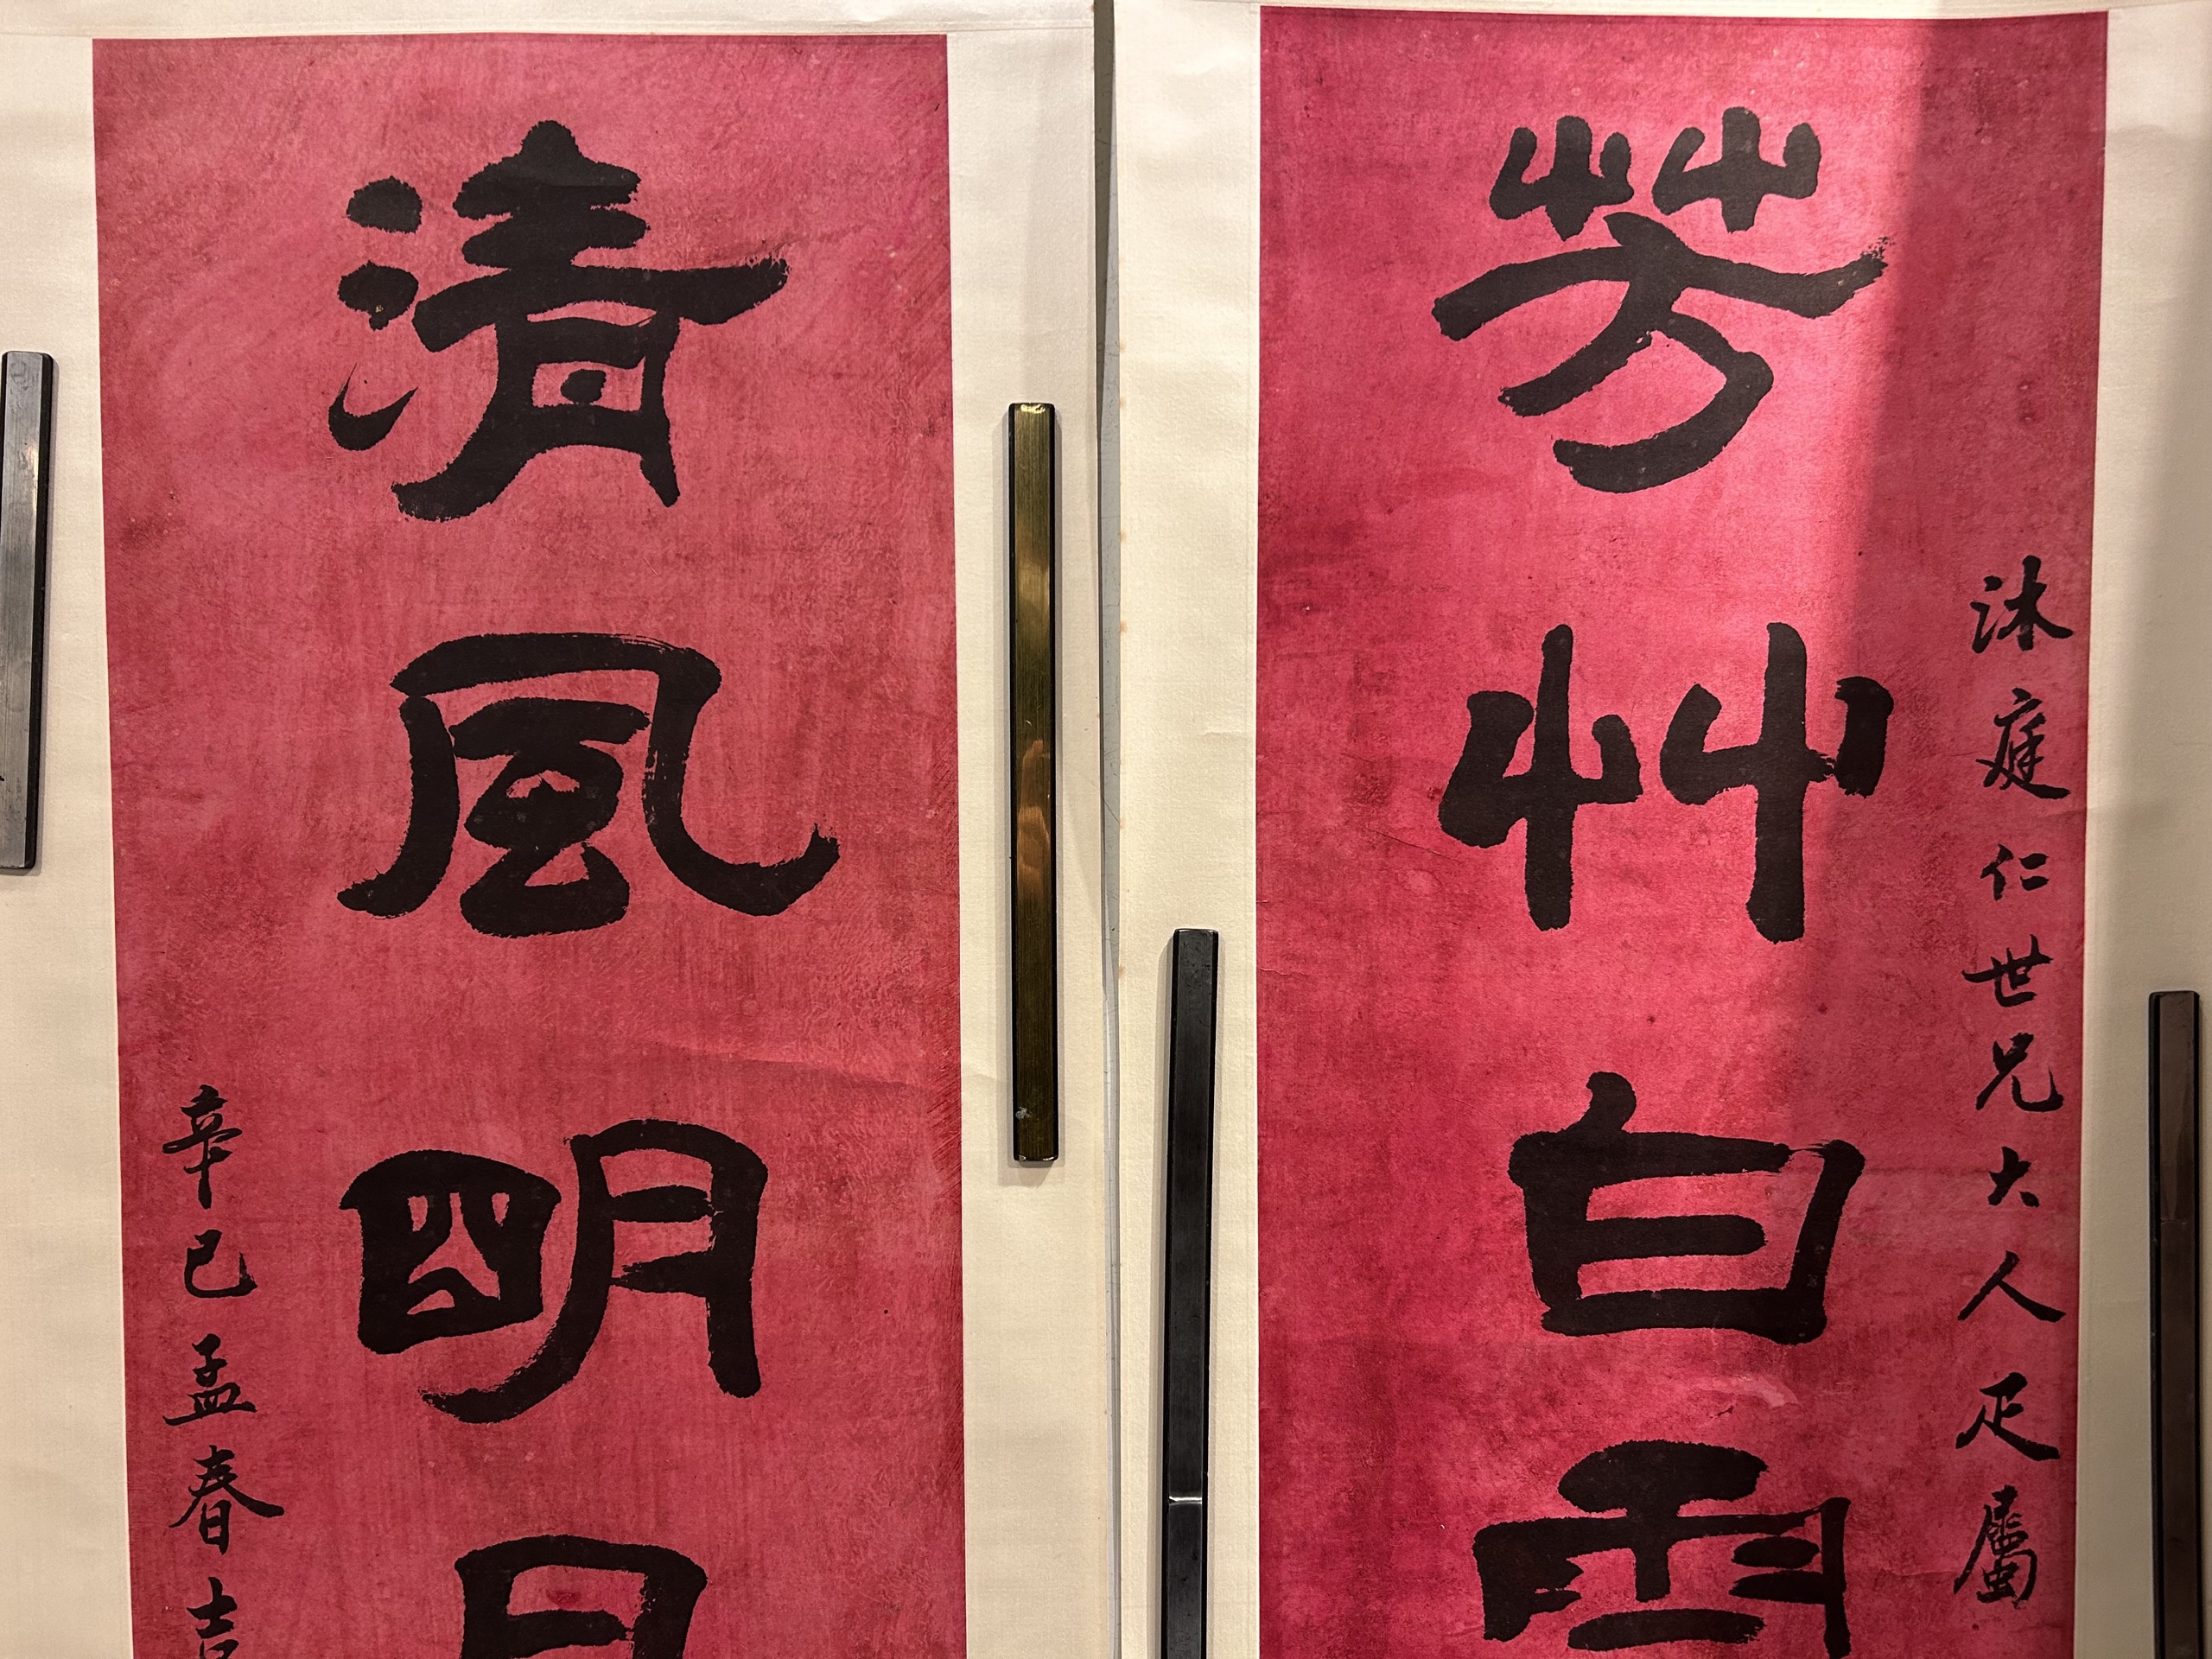 沐庭仁世兄大人疋屬
芳艸白
清風朙月
辛巳孟春吉